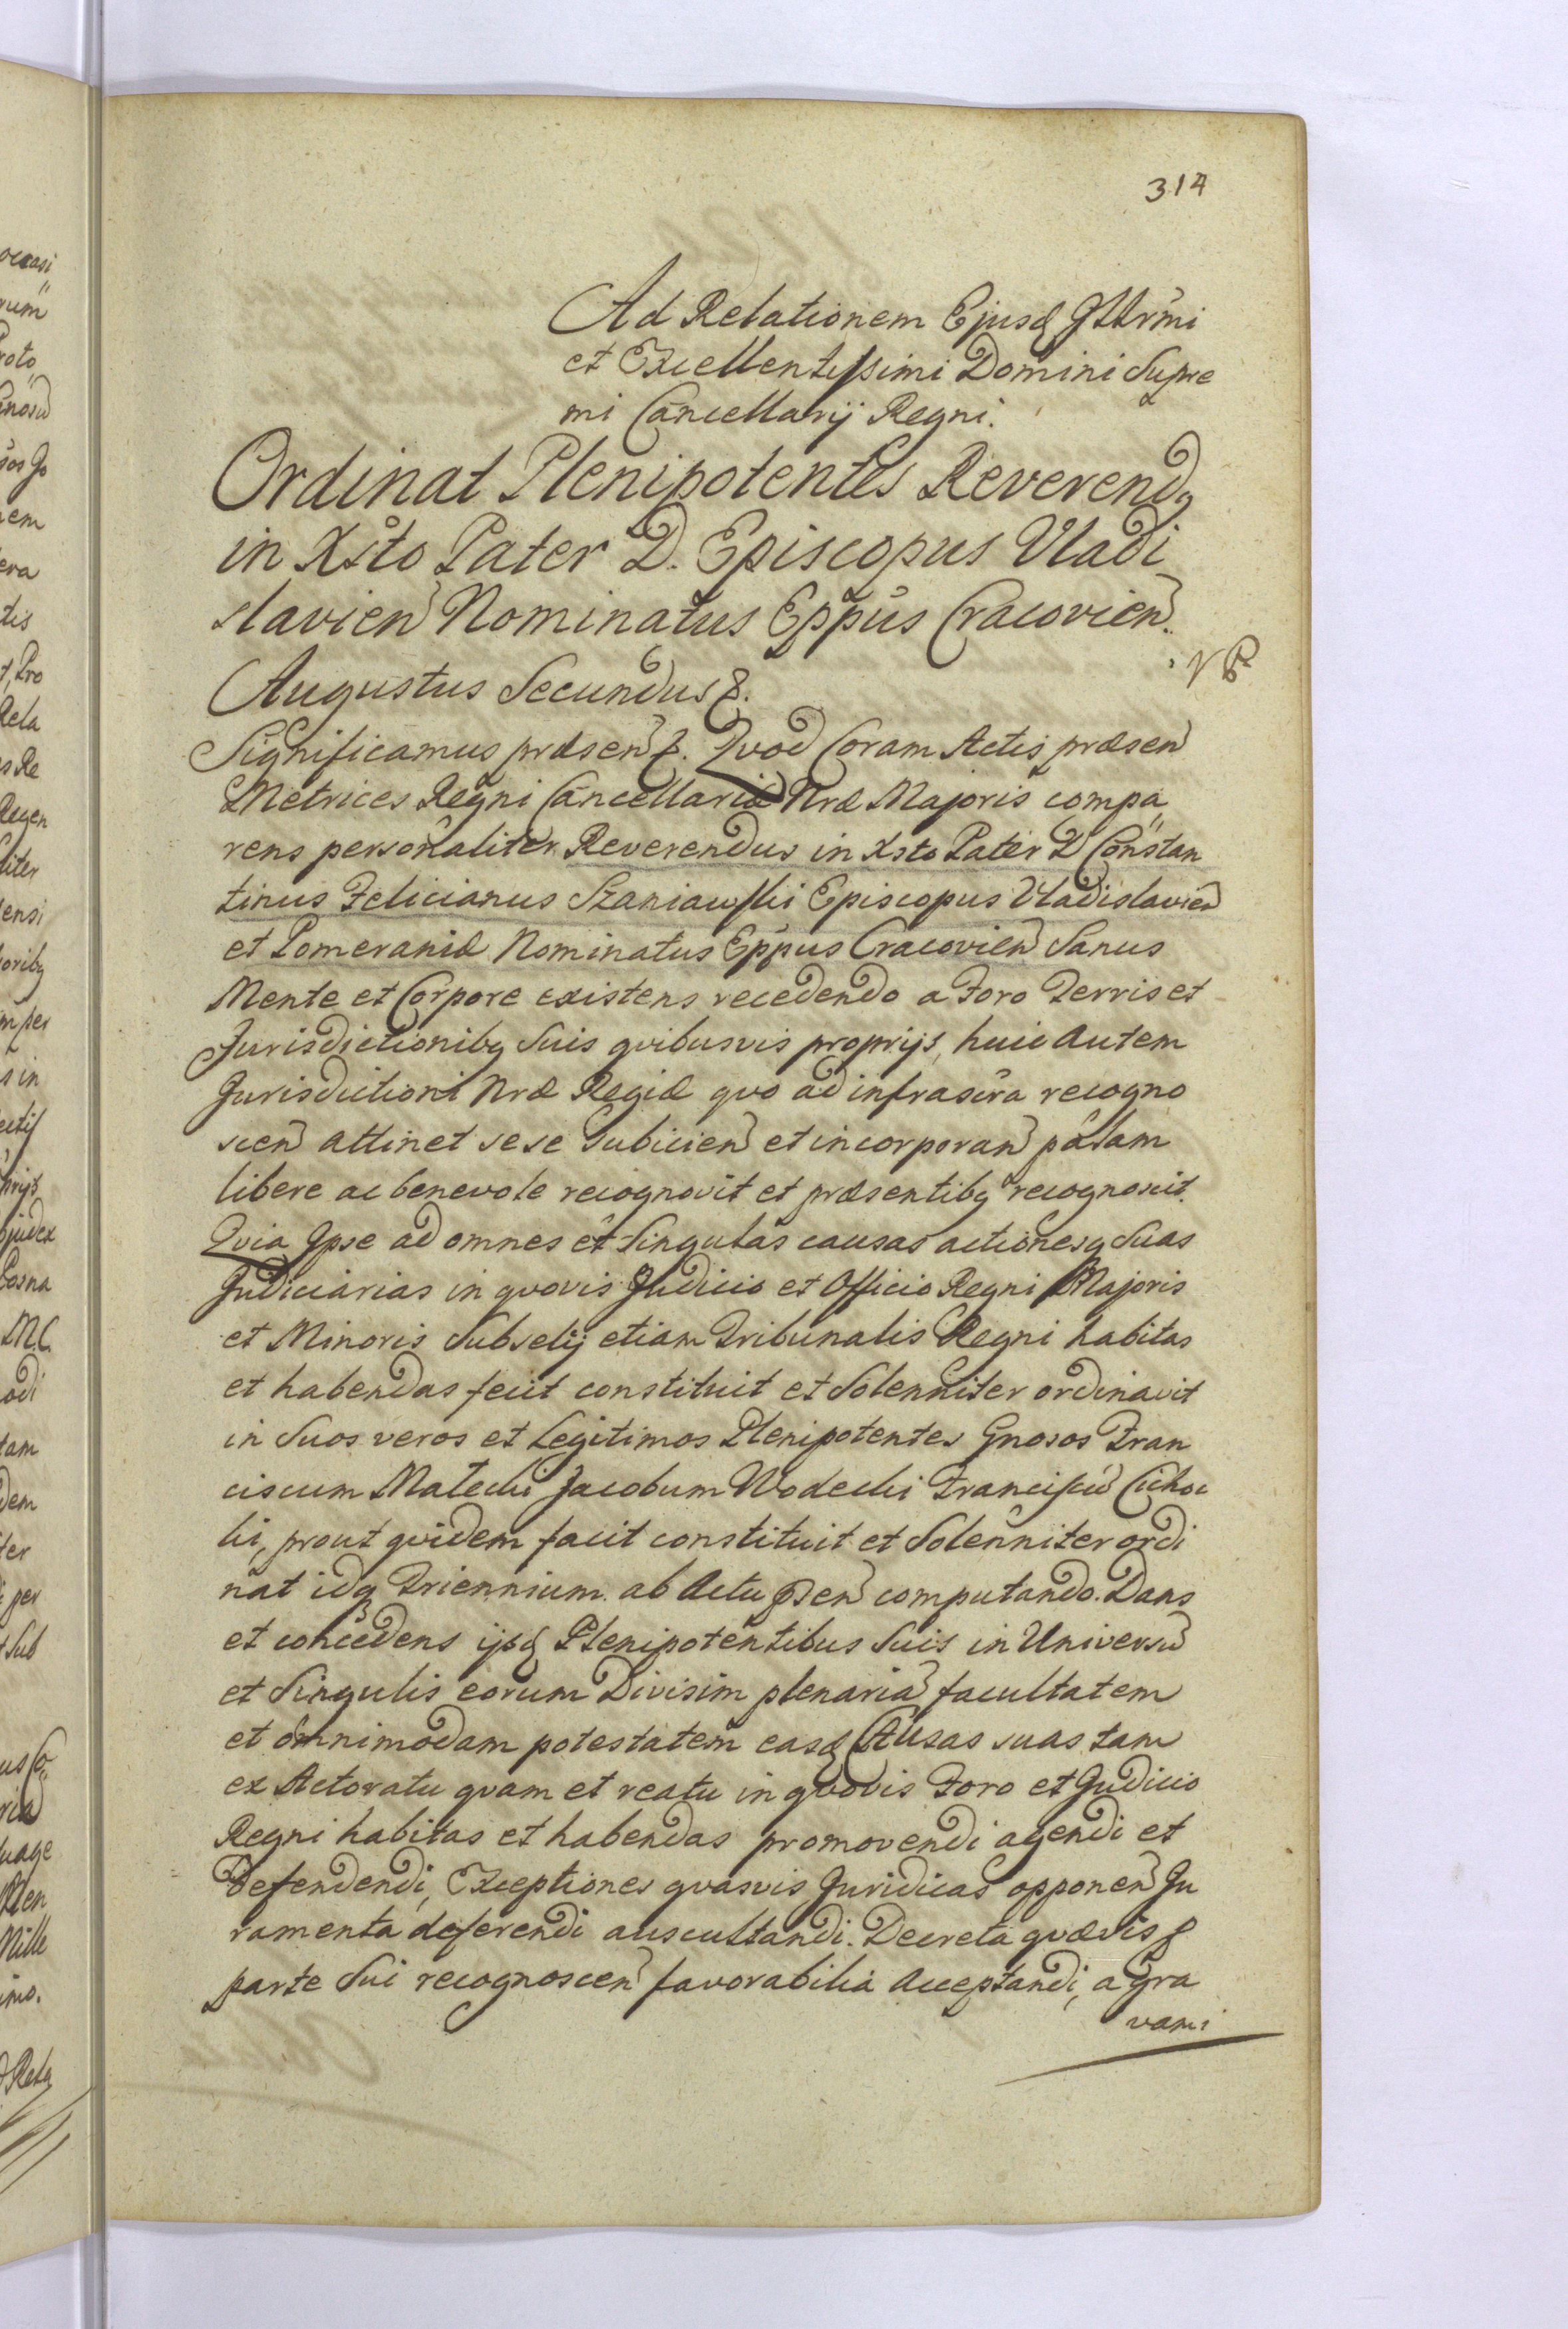 314
Ad Relationem Ejusd Illrmi
et Excellentissimi Domini Supre
mi Cancellarij Regni.
Ordinat Plenipotentes Reverendq
in Xsto Pater D. Episcopus Vladi
slavien Nominatus Eppus Cracovien.
Augustus Secundus &.
Significamus præsen &. Qvod Coram Actis præsen
Metrices Regni Cancellariæ Nræ Majoris compa„
rens personaliter Reverendus in Xsto Pater D Constan
tinus Felicianus Szaniawski Episcopus Vladislavien
et Pomeraniæ Nominatus Eppus Cracovien Sanus
Mente et Corpore existens recedendo a Foro Terris et
Jurisdictionibq Suis qvibusvis proprijs, huic Autem
Jurisdictioni Nræ Regiæ qvo ad infrascra recogno
scen attinet sese Subicien et incorporan palam
libere ac benevole recognovit et præsentibq recognoscit.
Qvia Ipse ad omnes et Singulas causas actionesq Suas
Judiciarias in qvovis Judicio et Officio Regni Majoris
et Minoris Subselij etiam Tribunalis Regni habitas
et habendas fecit constituit et Solenniter ordinavit
in Suos veros et Legitimos Plenipotentes Gnosos Fran
ciscum Malecki Jacobum Wodecki Franciscu Cichoc
ki, prout qvidem facit constituit et Solenniter ordi
nat idq Triennium ab Actu psen computando. Dans
et concedens ijsd Plenipotentibus Suis in Universu
et Singulis eorum Divisim plenaria facultatem
et omnimodam potestatem easd Causas suas tam
ex Actoratu qvam et reatu in qvovis Foro et Judicio
Regni habitas et habendas promovendi agendi et
Defendendi, Exceptiones qvasvis Juridicas opponen Ju
ramenta deferendi auscultandi. Decreta qvævis p
parte Sui recognoscen favorabilia Acceptandi, a gra
vami